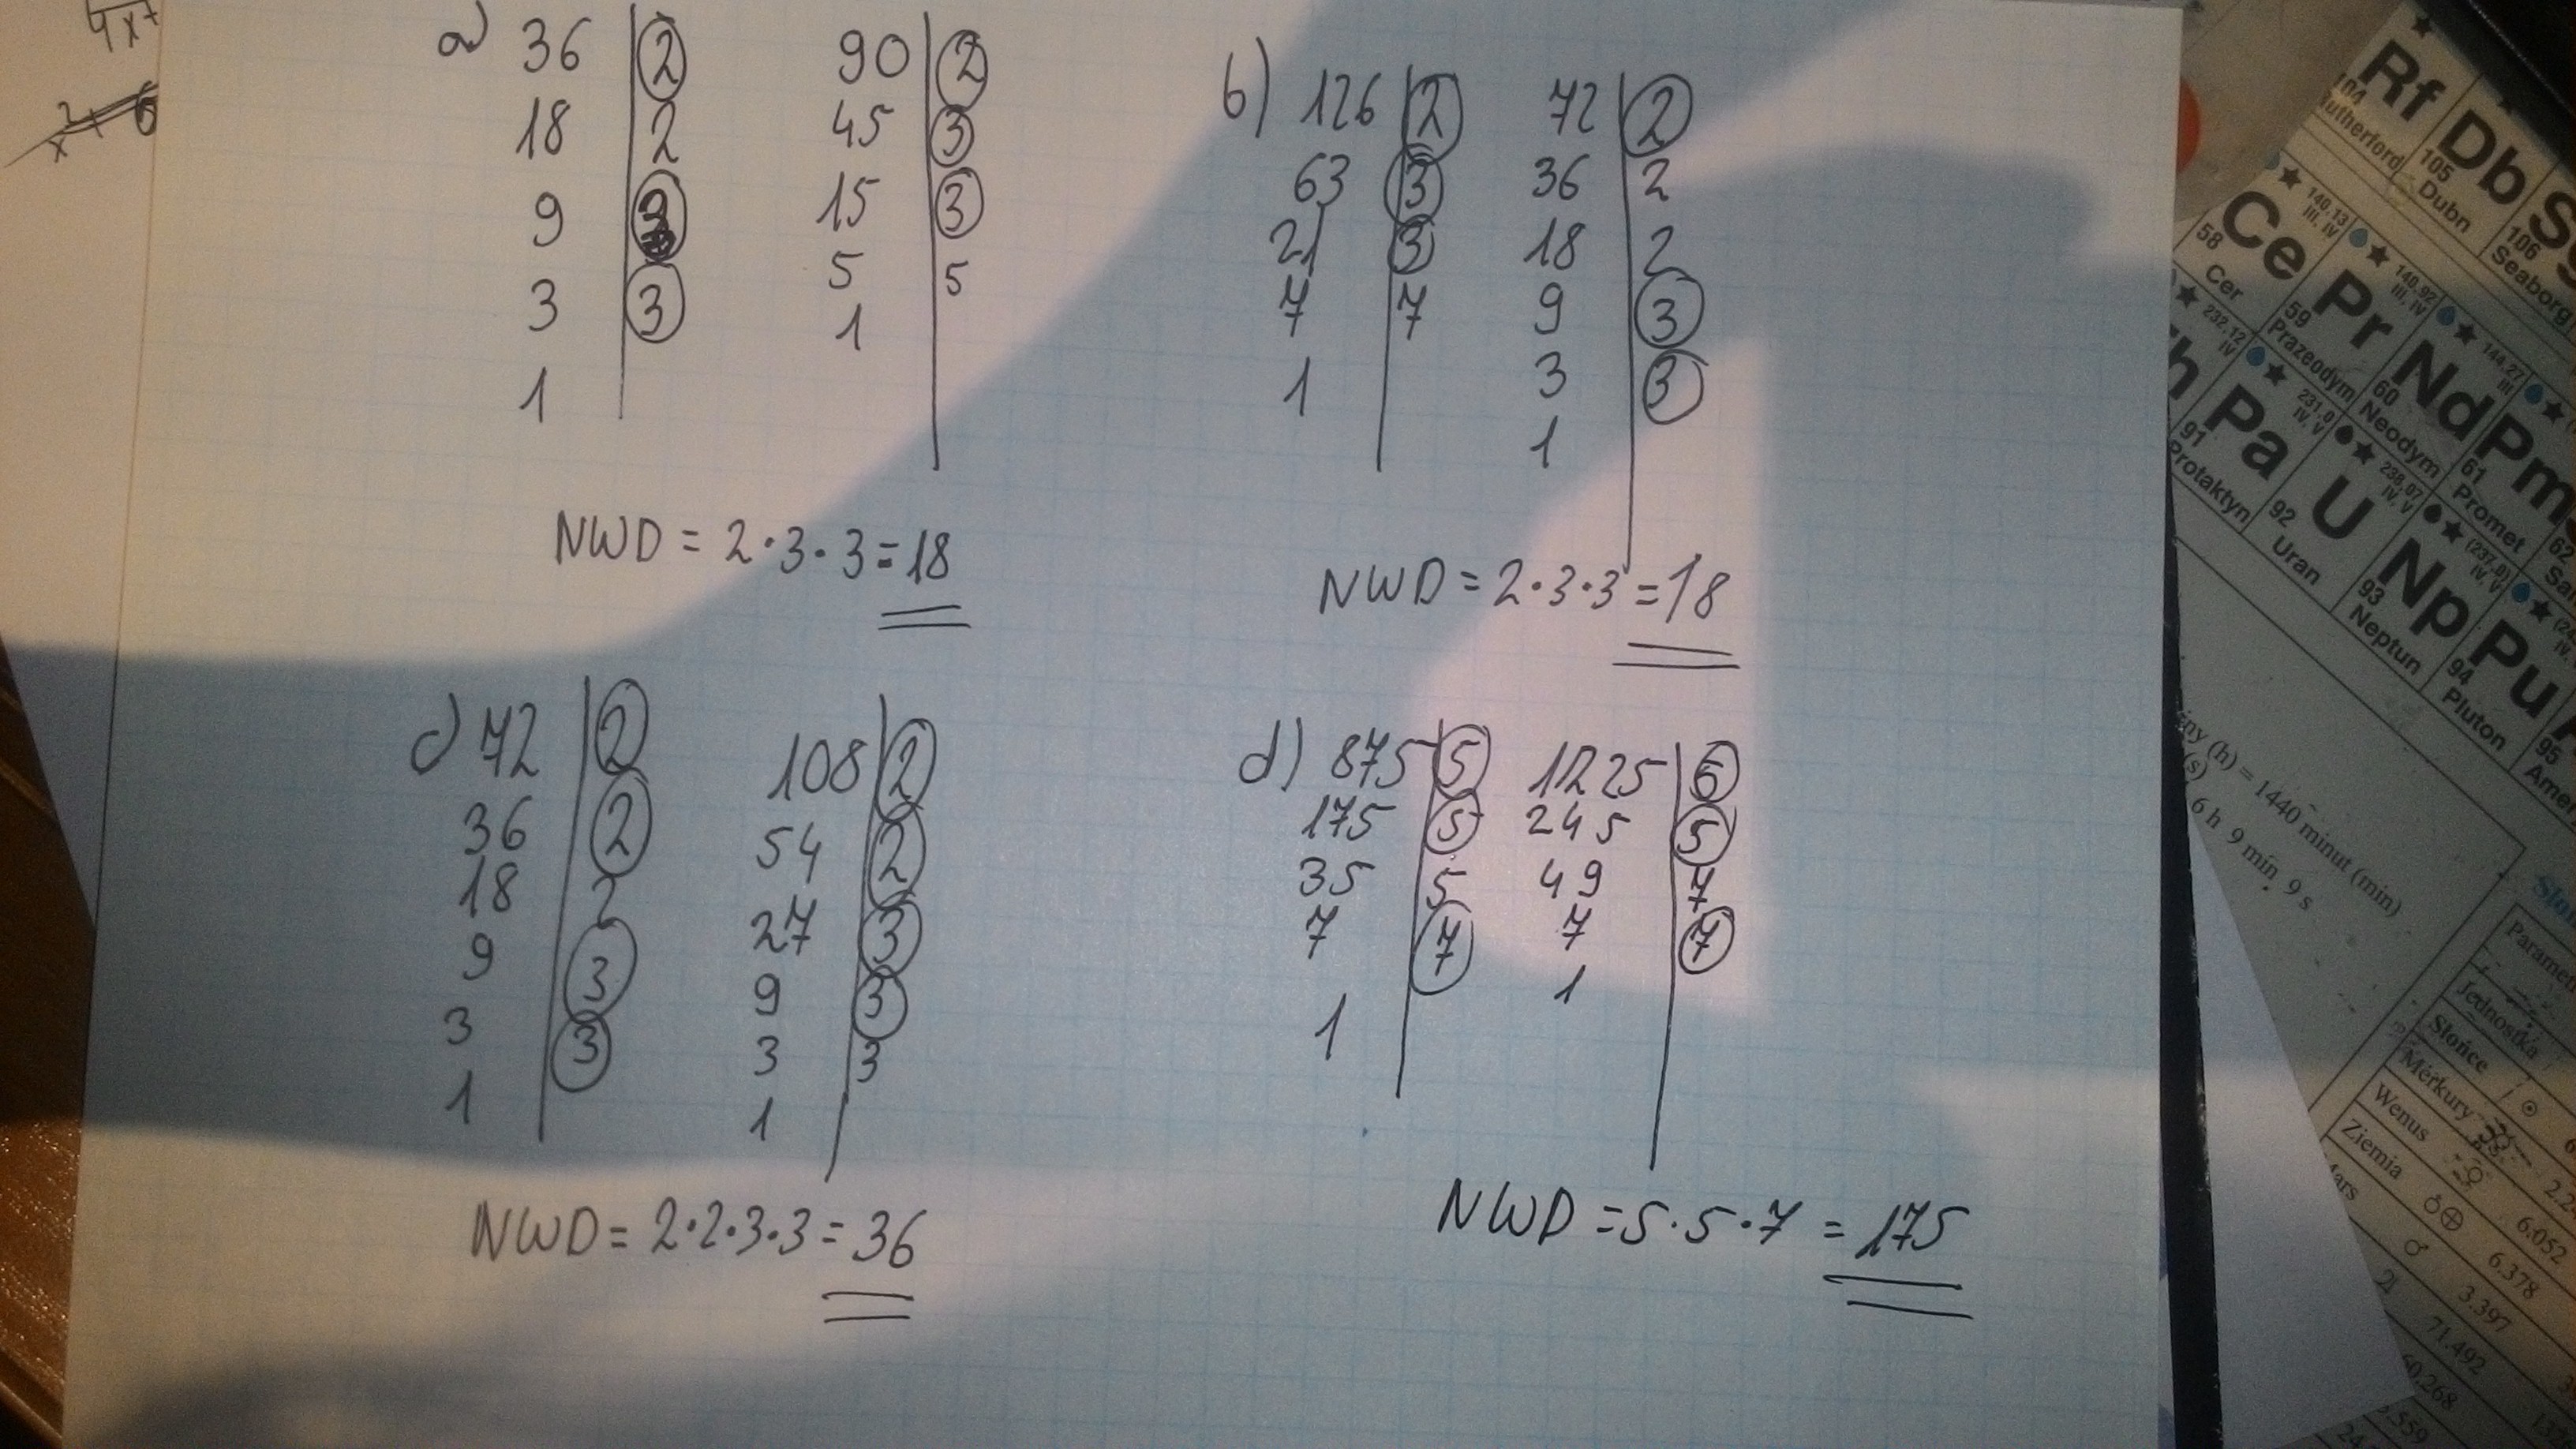 4x²
x² + 6
a) 36 | 2 90 | 2
18 | 2 45 | 3
9 | 3 15 | 3
3 | 3 5 | 5
1 1
NWD = 2·3·3 = 18
b) 126 | 2 72 | 2
63 | 3 36 | 2
21 | 3 18 | 2
7 | 7 9 | 3
1 3 | 3
1
NWD = 2·3·3 = 18
c) 72 | 2 108 | 2
36 | 2 54 | 2
18 | 2 27 | 3
9 | 3 9 | 3
3 | 3 3 | 3
1 1
NWD = 2·2·3·3 = 36
d) 875 | 5 1225 | 5
175 | 5 245 | 5
35 | 5 49 | 7
7 | 7 7 | 7
1 1
NWD = 5·5·7 = 175
Rf Db
104 105 106
Dubn Seaborg
140.13 140.92 144.27
III, IV III, IV III
Ce Pr Nd Pm
58 59 60 61 62
Cer Prazeodym Neodym Promet
232.12 231.0 238.07 (237.0)
IV IV, V IV, V IV, V
Th Pa U Np Pu
91 92 93 94 95
Protaktyn Uran Neptun Pluton
(h) = 1440 minut (min)
(s) 6 h 9 min 9 s
Jednostka
Słońce ☉
Merkury
Wenus
Ziemia
6.052
6.378
3.397
71.492
60.268